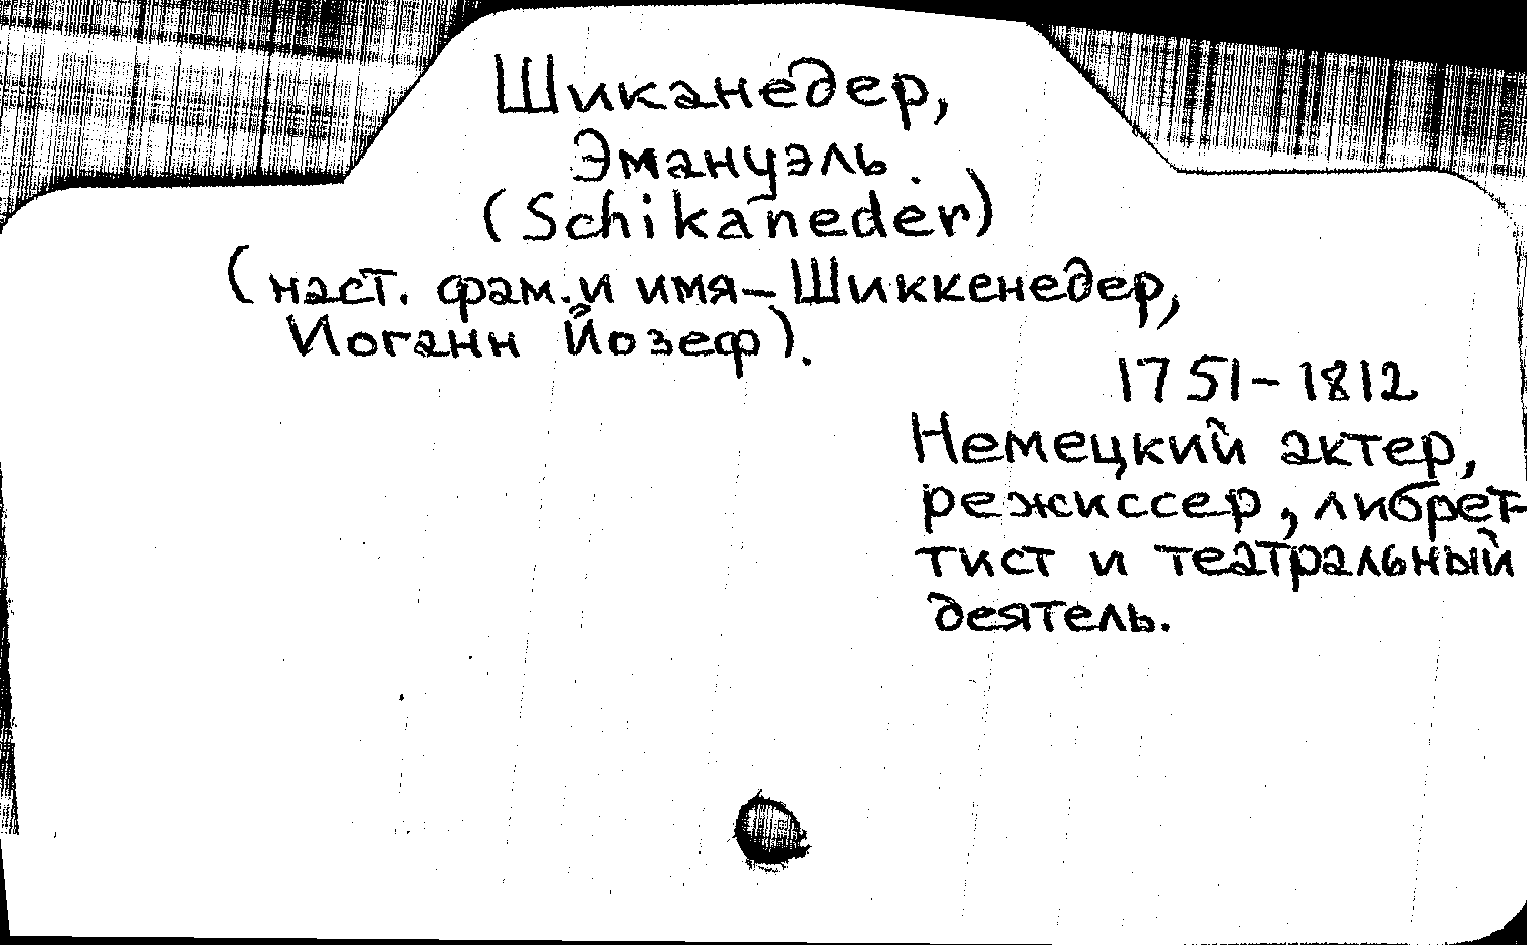 Шиканедер,
Эмануэль.
(Schikaneder)
(наст. фам. и имя – Шиккенедер,
Иоганн Йозеф).
1751 – 1812
Немецкий актер,
режиссер, либрет-
тист и театральный
деятель.